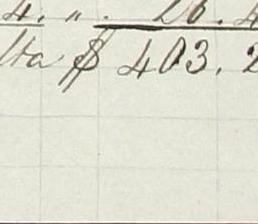 4. " . 26. 4
lta $ 403. 2